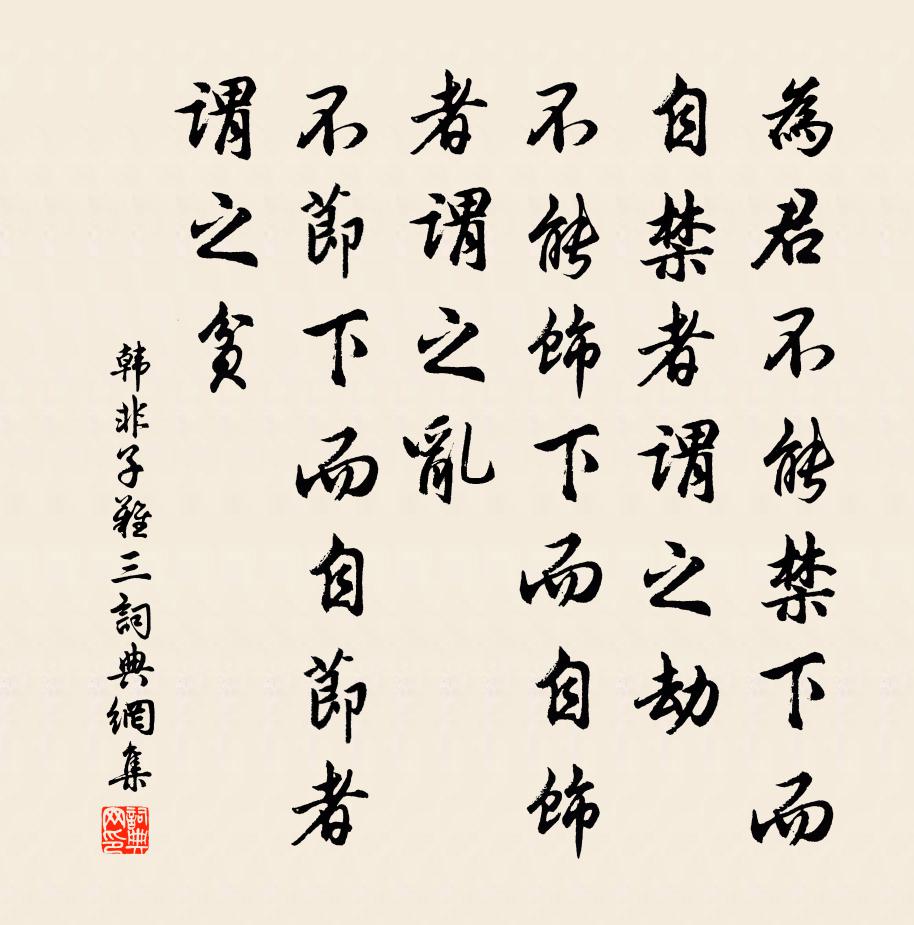 為君不能禁下而
自禁者謂之劫
不能飾下而自飾
者謂之亂
不節下而自節者
謂之貧
韩非子難三詞典網集
詞典网印